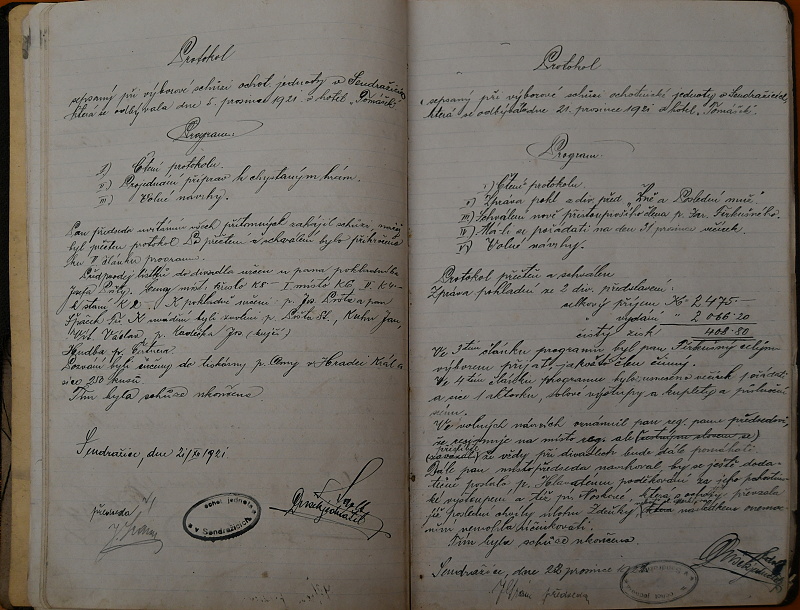 Protokol
sepsaný při výborové schůzi ochot. jednoty v Sendražicích
která se odbývala dne 5. prosince 1921 v hotel „Tomášků“.
Program:
I) Čtení protokolu.
II) Projednání příprav k chystaným hrám.
III) Volné návrhy.
Pan předseda uvítáním všech přítomných zahájil schůzi, načež
byl přečten protokol. Po přečtení a schválení bylo přikročeno
ku II. článku programu.
Předprodej lístků do divadla určen u pana pokladníka
Josefa Lošty. Ceny míst: křeslo K 8 – I místo K 6, II. K 4 –
k stání K 2. – K pokladně určeni: p. Jos. Lošta a pan
Špaček Fr. K uvádění byli zvoleni p. Lošta St., Kuhn Jan,
Václav, p. Jos.
Hudba p.
Pozvání byli do tiskárny p. v Hradci Král. a
sice 250 kusů.
Tím byla schůze ukončena.
Sendražice, dne 21/XII 1921
předseda
ochot. jednota
v Sendražicích
Protokol
sepsaný při výborové schůzi ochotnické jednoty v Sendražicích,
která se odbývala dne 21. prosince 1921 v hotel „Tomášků“.
Program
I) Čtení protokolu.
II) Zpráva pokl. z div. před. „Žně a Poslední muž“.
III) Schválení nově přistouplého člena p. Jar.
IV) Má-li se pořádati na den 31 prosince večírek.
V) Volné návrhy.
Protokol přečten a schválen
Zpráva pokladní ze 2 div. představení:
celkový příjem K 2475.–
vydání „ 2066.20
čistý zisk 408.80
Ve 3tím článku programu byl pan celým
výborem přijat, jakožto člen činný.
Ve 4tém článku programu bylo usneseno večírek pořádati
a sice 1 aktovku, sólové výstupy a kuplety a půlnoční
scénu.
Ve volných návrzích oznámil pan reg. panu předsedovi,
že resignuje na místo reg. ale
že vždy při divadlech bude dále pomáhati.
Dále pan místopředseda navrhoval, by se ještě doda-
tečně poslalo p. poděkování za jeho pohostin-
ské vystoupení a též pí. Noskové, která z ochoty převzala
při poslední chvíli úlohu Zdeňky následkem onemoc-
nění nemohla účinkovati.
Tím byla schůze ukončena.
Sendražice, dne 22 prosince 1921
předseda